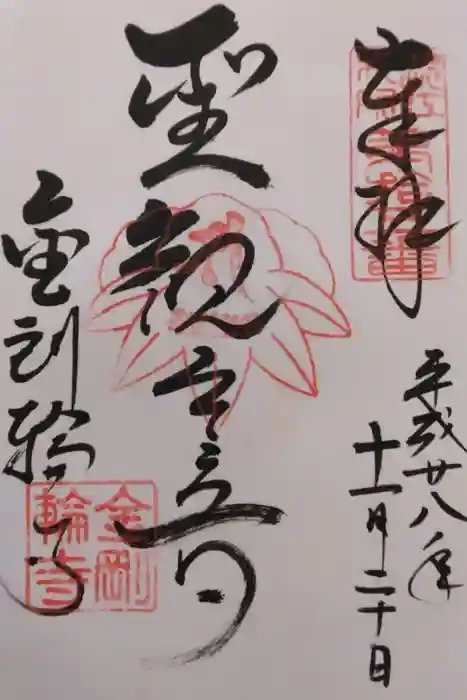 奉拝
平成廿八年
十一月二十日
聖観音
金剛輪寺
金剛
輪寺